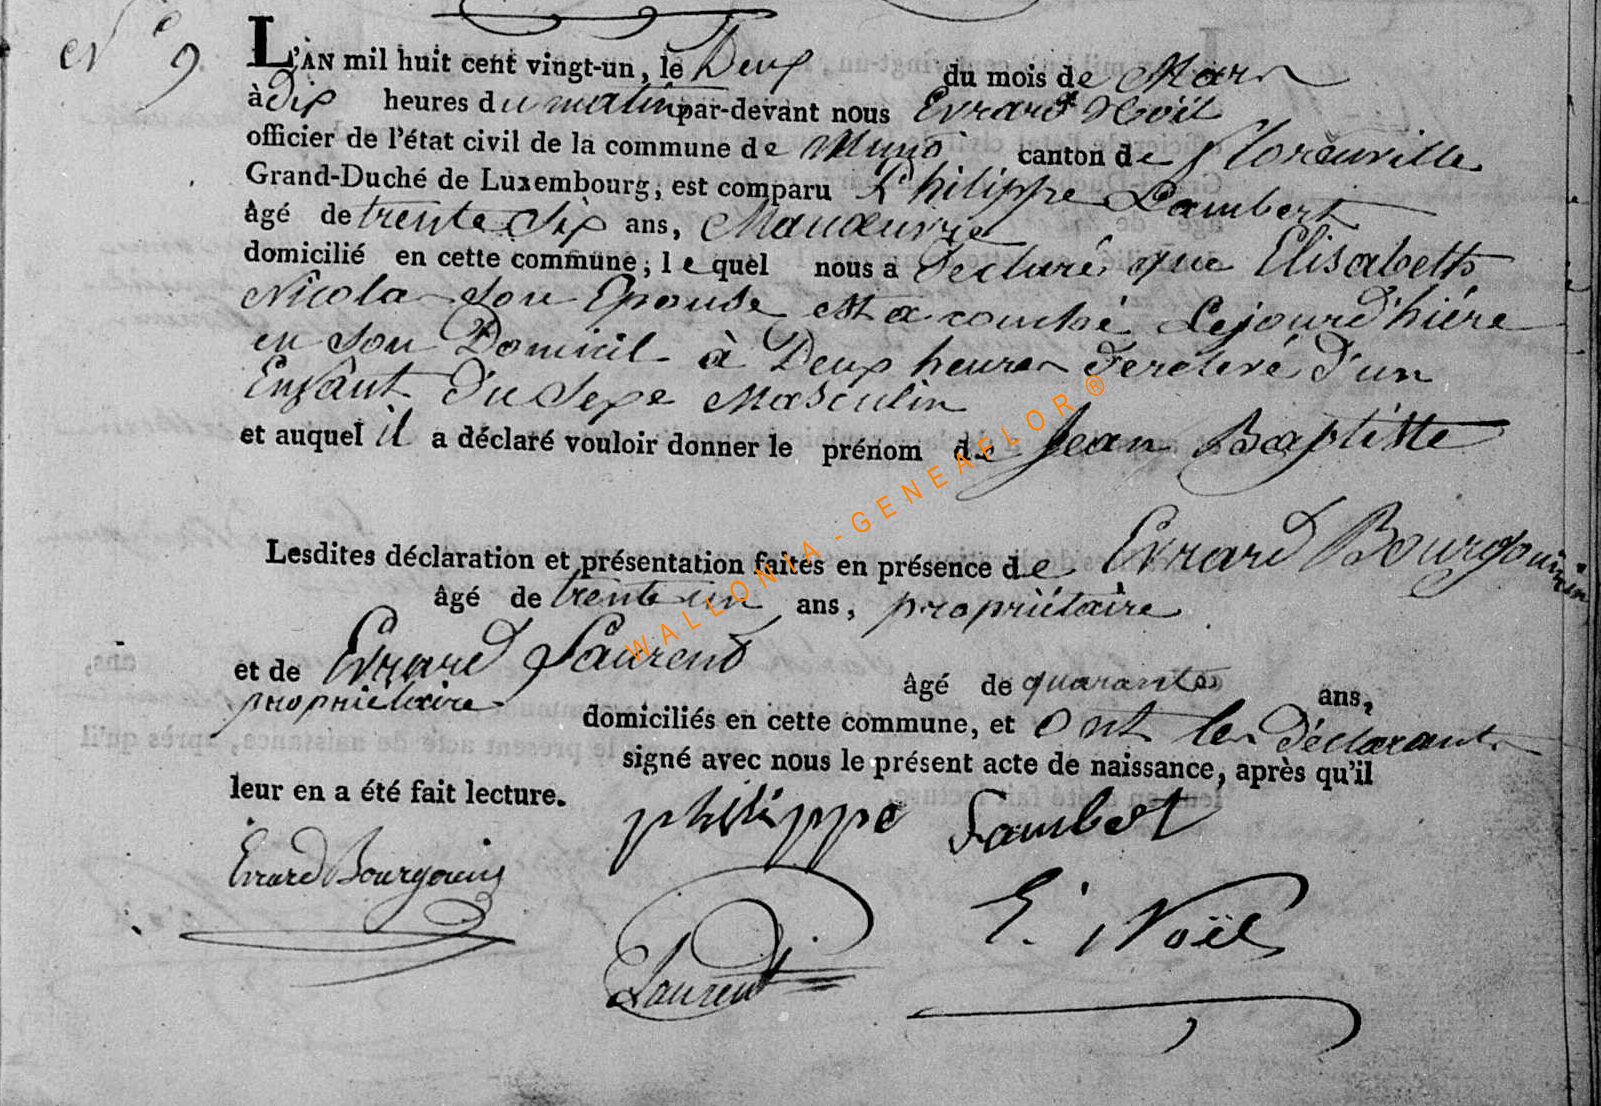 N° 9
L'AN mil huit cent vingt-un, le Deux du mois de Mars
à Dix heures du matin par-devant nous Evrard Noël
officier de l'état civil de la commune de Muno canton de Florenville
Grand-Duché de Luxembourg, est comparu Philippe Lambert
âgé de trente Six ans, Manœuvre
domicilié en cette commune, lequel nous a Declaré, que Elisabeth
Nicolas Son Epouse est acouché Lejourd'hiére
en Son Domicil à Deux heures d'un
Enfant Du Sexe Masculin
et auquel il a déclaré vouloir donner le prénom de Jean Baptiste
Lesdites déclaration et présentation faites en présence de Evrard Bourgouinin
âgé de trente un ans, propriétaire
et de Evrard Laurent âgé de quarante ans,
propriétaire domiciliés en cette commune, et ont les Déclarants
signé avec nous le présent acte de naissance, après qu'il
leur en a été fait lecture.
philippe Lambert
Evrard Bourgouin
E. Noël
Laurent
WALLONIA-GENEAFLOR®